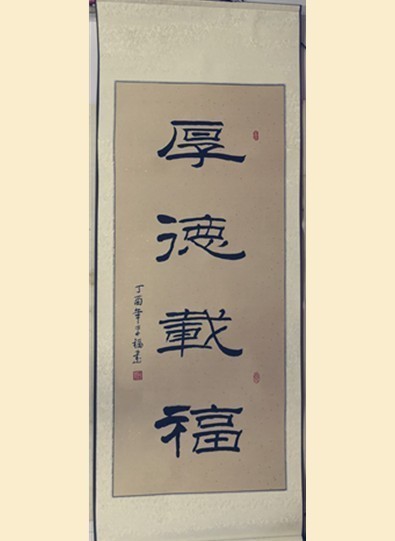 厚德載福
丁酉年學福書